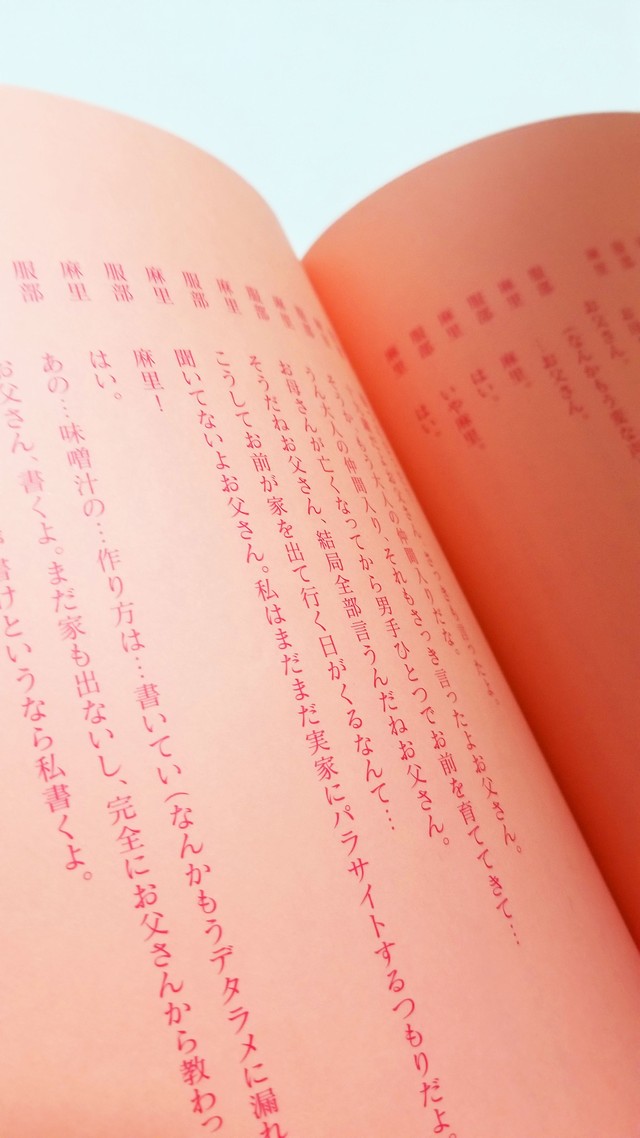 …お父さん。
服部 麻里。
麻里 はい。
服部 いや麻里。
麻里 はい。
大人の仲間入りだな。
麻里 うん大人の仲間入り、それもさっき言ったよお父さん。
服部 お母さんが亡くなってから男手ひとつでお前を育ててきて…
麻里 そうだねお父さん、結局全部言うんだねお父さん。
服部 こうしてお前が家を出て行く日がくるなんて…
麻里 聞いてないよお父さん。私はまだまだ実家にパラサイトするつもりだよ。
服部 麻里!
麻里 はい。
服部 あの…味噌汁の…作り方は…書いてい(なんかもうデタラメに漏れ
お父さん、書くよ。まだ家も出ないし、完全にお父さんから教わっ
書けというなら私書くよ。